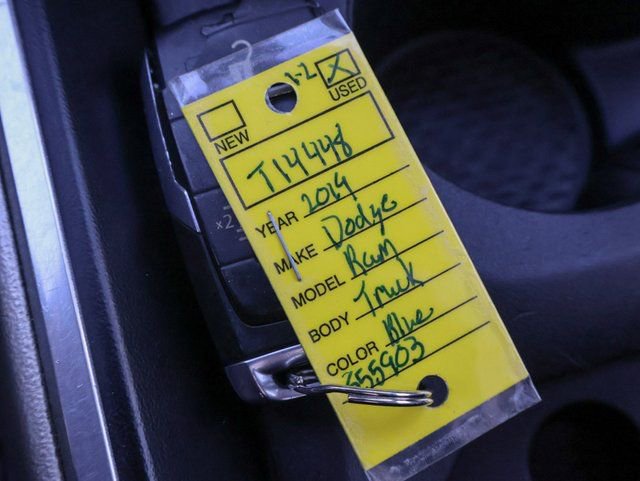 1-2 X
NEW USED
T14448
YEAR 2019
MAKE Dodge
MODEL Ram
BODY Truck
COLOR Blue
555903
x2